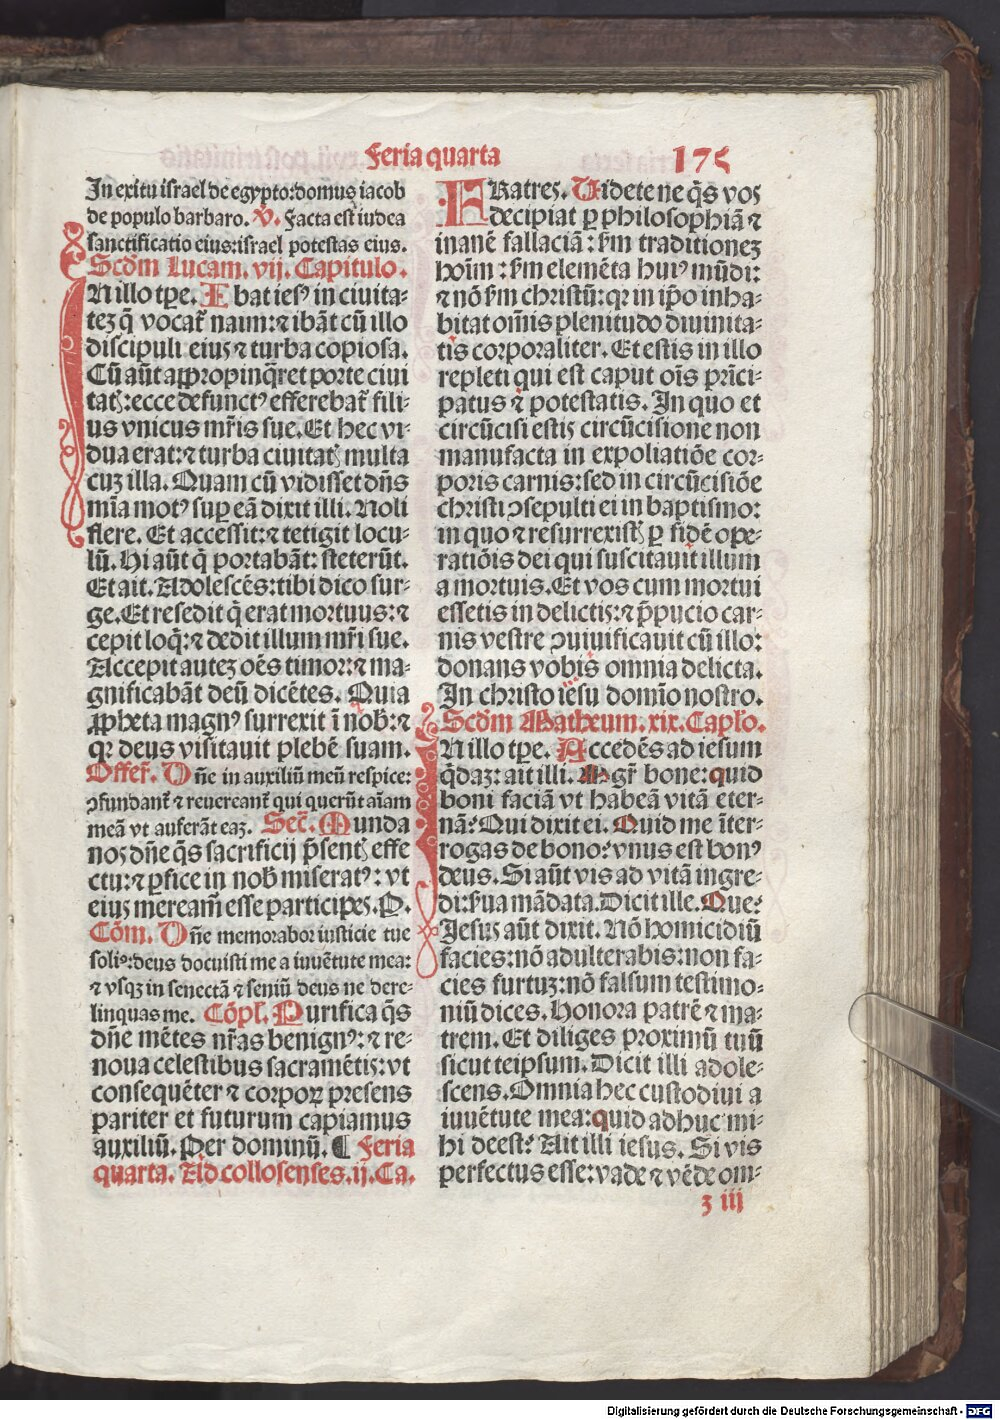 Feria quarta 175
In exitu israel de egypto:domus iacob
de populo barbaro. V. Facta est iudea
sanctificatio eius:israel potestas eius.
Scd̄m Lucam. vij. Capitulo.
IN illo tp̄e. Ibat iesꝰ in ciuita-
teꝫ q̄ vocat̄ naim:⁊ ibāt cū illo
discipuli eius ⁊ turba copiosa.
Cū aūt appropinq̄ret porte ciui
tatꝭ:ecce defunctꝰ efferebat̄ fili-
us vnicus mr̄is sue. Et hec vi-
dua erat:⁊ turba ciuitatꝭ multa
cuꝫ illa. Quam cū vidisset dn̄s
mīa motꝰ suꝑ eā dixit illi. Noli
flere. Et accessit:⁊ tetigit locu-
lū. Hi aūt q̄ portabāt: steterūt.
Et ait. Adolescēs:tibi dico sur-
ge. Et resedit q̄ erat mortuus:⁊
cepit loq̄:⁊ dedit illum mr̄i sue.
Accepit auteꝫ oēs timor:⁊ ma-
gnificabāt deū dicētes. Quia
ꝓpheta magnꝰ surrexit ī nob̄:⁊
qꝛ deus visitauit plebē suam.
Offer̄. Dn̄e in auxiliū meū respice:
ↄfundant̄ ⁊ reuereant̄ qui querūt aīam
meā vt auferāt eaꝫ. Sec̄. Munda
nos dn̄e q̄s sacrificij p̄sentꝭ effe
ctu:⁊ ꝑfice in nob̄ miseratꝰ: vt
eius meream̄ esse participes. P.
Cōm. Dn̄e memorabor iusticie tue
soliꝰ:deus docuisti me a iuuētute mea:
⁊ vsqꝫ in senectā ⁊ seniū deus ne dere-
linquas me. Cōpl̄. Purifica q̄s
dn̄e mētes nr̄as benignꝰ:⁊ re-
noua celestibus sacramētis:vt
consequēter ⁊ corpoꝝ presens
pariter et futurum capiamus
auxiliū. Per dominū. ¶ Feria
quarta. Ad collosenses. ij. Ca.
FRatres. Uidete ne q̄s vos
decipiat ꝑ philosophiā ⁊
inanē fallaciā: ẜm traditioneꝫ
hoīm: ẜm elemēta huiꝰ mūdi:
⁊ nō ẜm christū:qꝛ in ip̄o inha-
bitat om̄is plenitudo diuinita-
tis corporaliter. Et estis in illo
repleti qui est caput oīs prīci-
patus ⁊ potestatis. In quo et
circūcisi estis circūcisione non
manufacta in expoliatiōe cor-
poris carnis:sed in circūcisiōe
christi ↄsepulti ei in baptismo:
in quo ⁊ resurrexistꝭ ꝑ fidē ope-
ratiōis dei qui suscitauit illum
a mortuis. Et vos cum mortui
essetis in delictis:⁊ p̄pucio car-
nis vestre ↄuiuificauit cū illo:
donans vobis omnia delicta.
In christo iesu domīo nostro.
Scd̄m Matheum. xix. Capl̄o.
IN illo tp̄e. Accedēs ad iesum
q̄daꝫ: ait illi. Mgr̄ bone: quid
boni faciā vt habeā vitā eter-
nā? Qui dixit ei. Quid me īter-
rogas de bono? vnus est bonꝰ
deus. Si aūt vis ad vitā ingre-
di:ẜua mādata. Dicit ille. Que?
Jesus aūt dixit. Nō homicidiū
facies:nō adulterabis:non fa-
cies furtuꝫ:nō falsum testimo-
niū dices. Honora patrē ⁊ ma-
trem. Et diliges proximū tuū
sicut teipsum. Dicit illi adole-
scens. Omnia hec custodiui a
iuuētute mea:quid adhuc mi-
hi deest? Ait illi iesus. Si vis
perfectus esse:vade ⁊ vēde om-
ꝫ iij
Digitalisierung gefördert durch die Deutsche Forschungsgemeinschaft - DFG